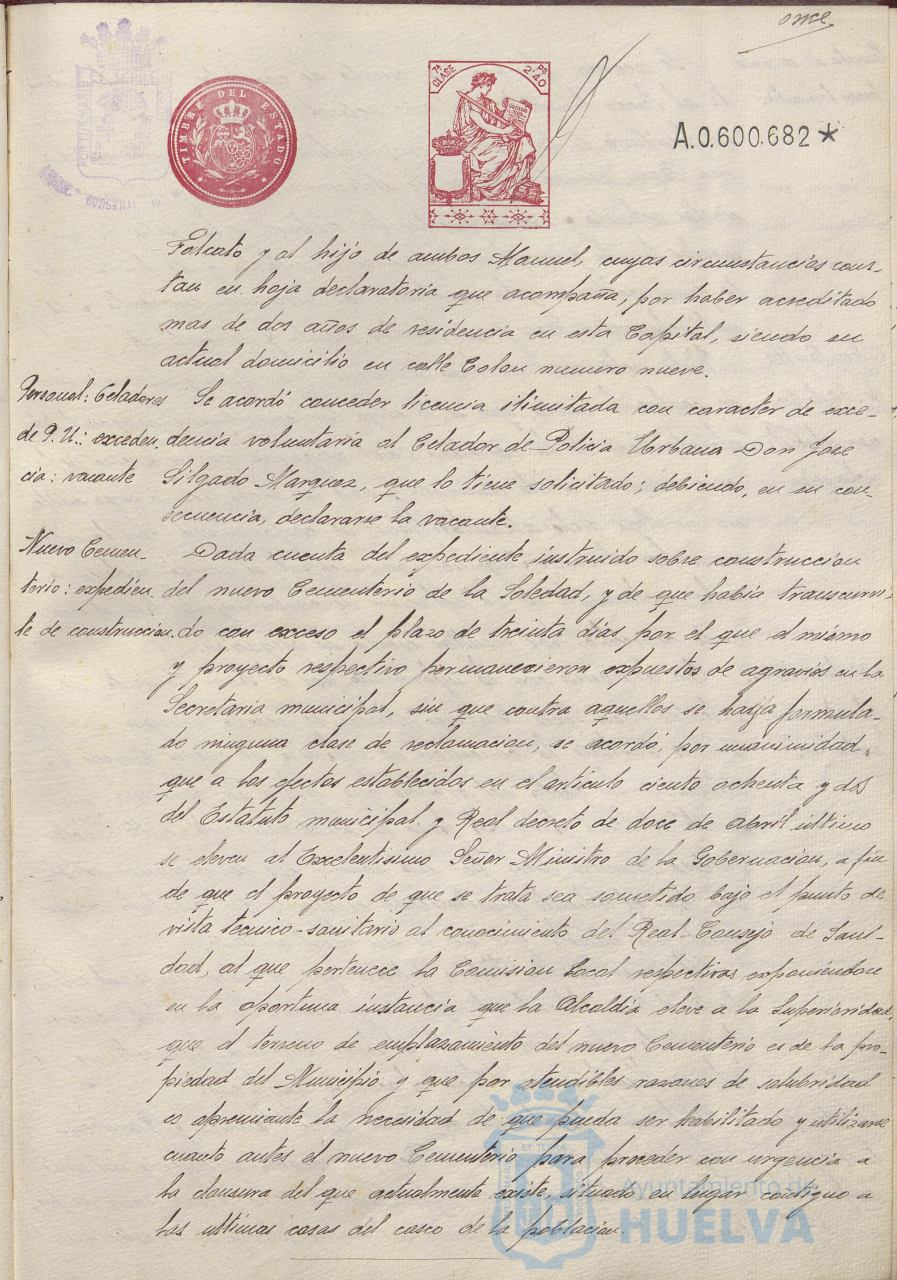 once
TIMBRE DEL ESTADO
7ª CLASE
Ps 2'40
A.0.600.682 *
Falcato y al hijo de ambos Manuel, cuyas circunstancias cons-
tan en hoja declaratoria que acompaña, por haber acreditado
mas de dos años de residencia en esta Capital, siendo su
actual domicilio en calle Colon numero nueve.
Personal: Celadores
de P. U.: exceden
cia: vacante
Se acordó conceder licencia ilimitada con caracter de exce-
dencia voluntaria al Celador de Policia Urbana Don Jose
Silgado Marquez, que lo tiene solicitado; debiendo, en su con-
secuencia, declararse la vacante.
Nuevo Cemen-
terio: expedien
te de construccion.
Dada cuenta del expediente instruido sobre construccion
del nuevo Cementerio de la Soledad, y de que habia transcurri-
do con exceso el plazo de treinta dias por el que el mismo
y proyecto respectivo permanecieron expuestos de agravios en la
Secretaria municipal, sin que contra aquellos se haya formula-
do ninguna clase de reclamacion, se acordó, por unanimidad,
que a los efectos establecidos en el articulo ciento ochenta y dos
del Estatuto municipal y Real decreto de doce de Abril ultimo
se eleven al Excelentisimo Señor Ministro de la Gobernacion, a fin
de que el proyecto de que se trata sea sometido bajo el punto de
vista tecnico-sanitario al conocimiento del Real Consejo de Sani-
dad, al que pertenece la Comision Local respectiva; exponiendose
en la oportuna instancia que la Alcaldia eleve a la Superioridad,
que el terreno de emplazamiento del nuevo Cementerio es de la pro-
piedad del Municipio y que por atendibles razones de salubridad
es apremiante la necesidad de que pueda ser habilitado y utilizarse
cuanto antes el nuevo Cementerio para proceder con urgencia a
la clausura del que actualmente existe, situado en lugar contiguo a
las ultimas casas del casco de la poblacion.
Ayuntamiento de
HUELVA